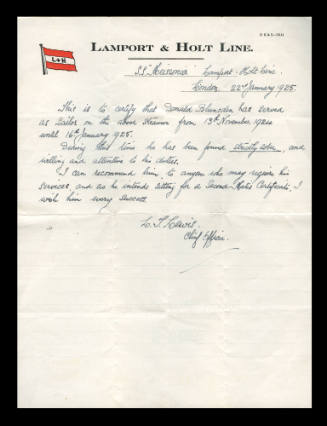 LAMPORT & HOLT LINE.
L+H
S.S. "Meissonier" Lamport & Holt Line.
London 22nd January 1925.
This is to certify that Donald has served
as Sailor on the above Steamer from 13th November 1924
until 16th January 1925.
During this time he has been found strictly sober, and
willing and attentive to his duties.
I can recommend him, to anyone who may require his
services, and as he intends sitting for a Second-Mate's Certificate, I
wish him every success.
Lewis.
Chief Officer.